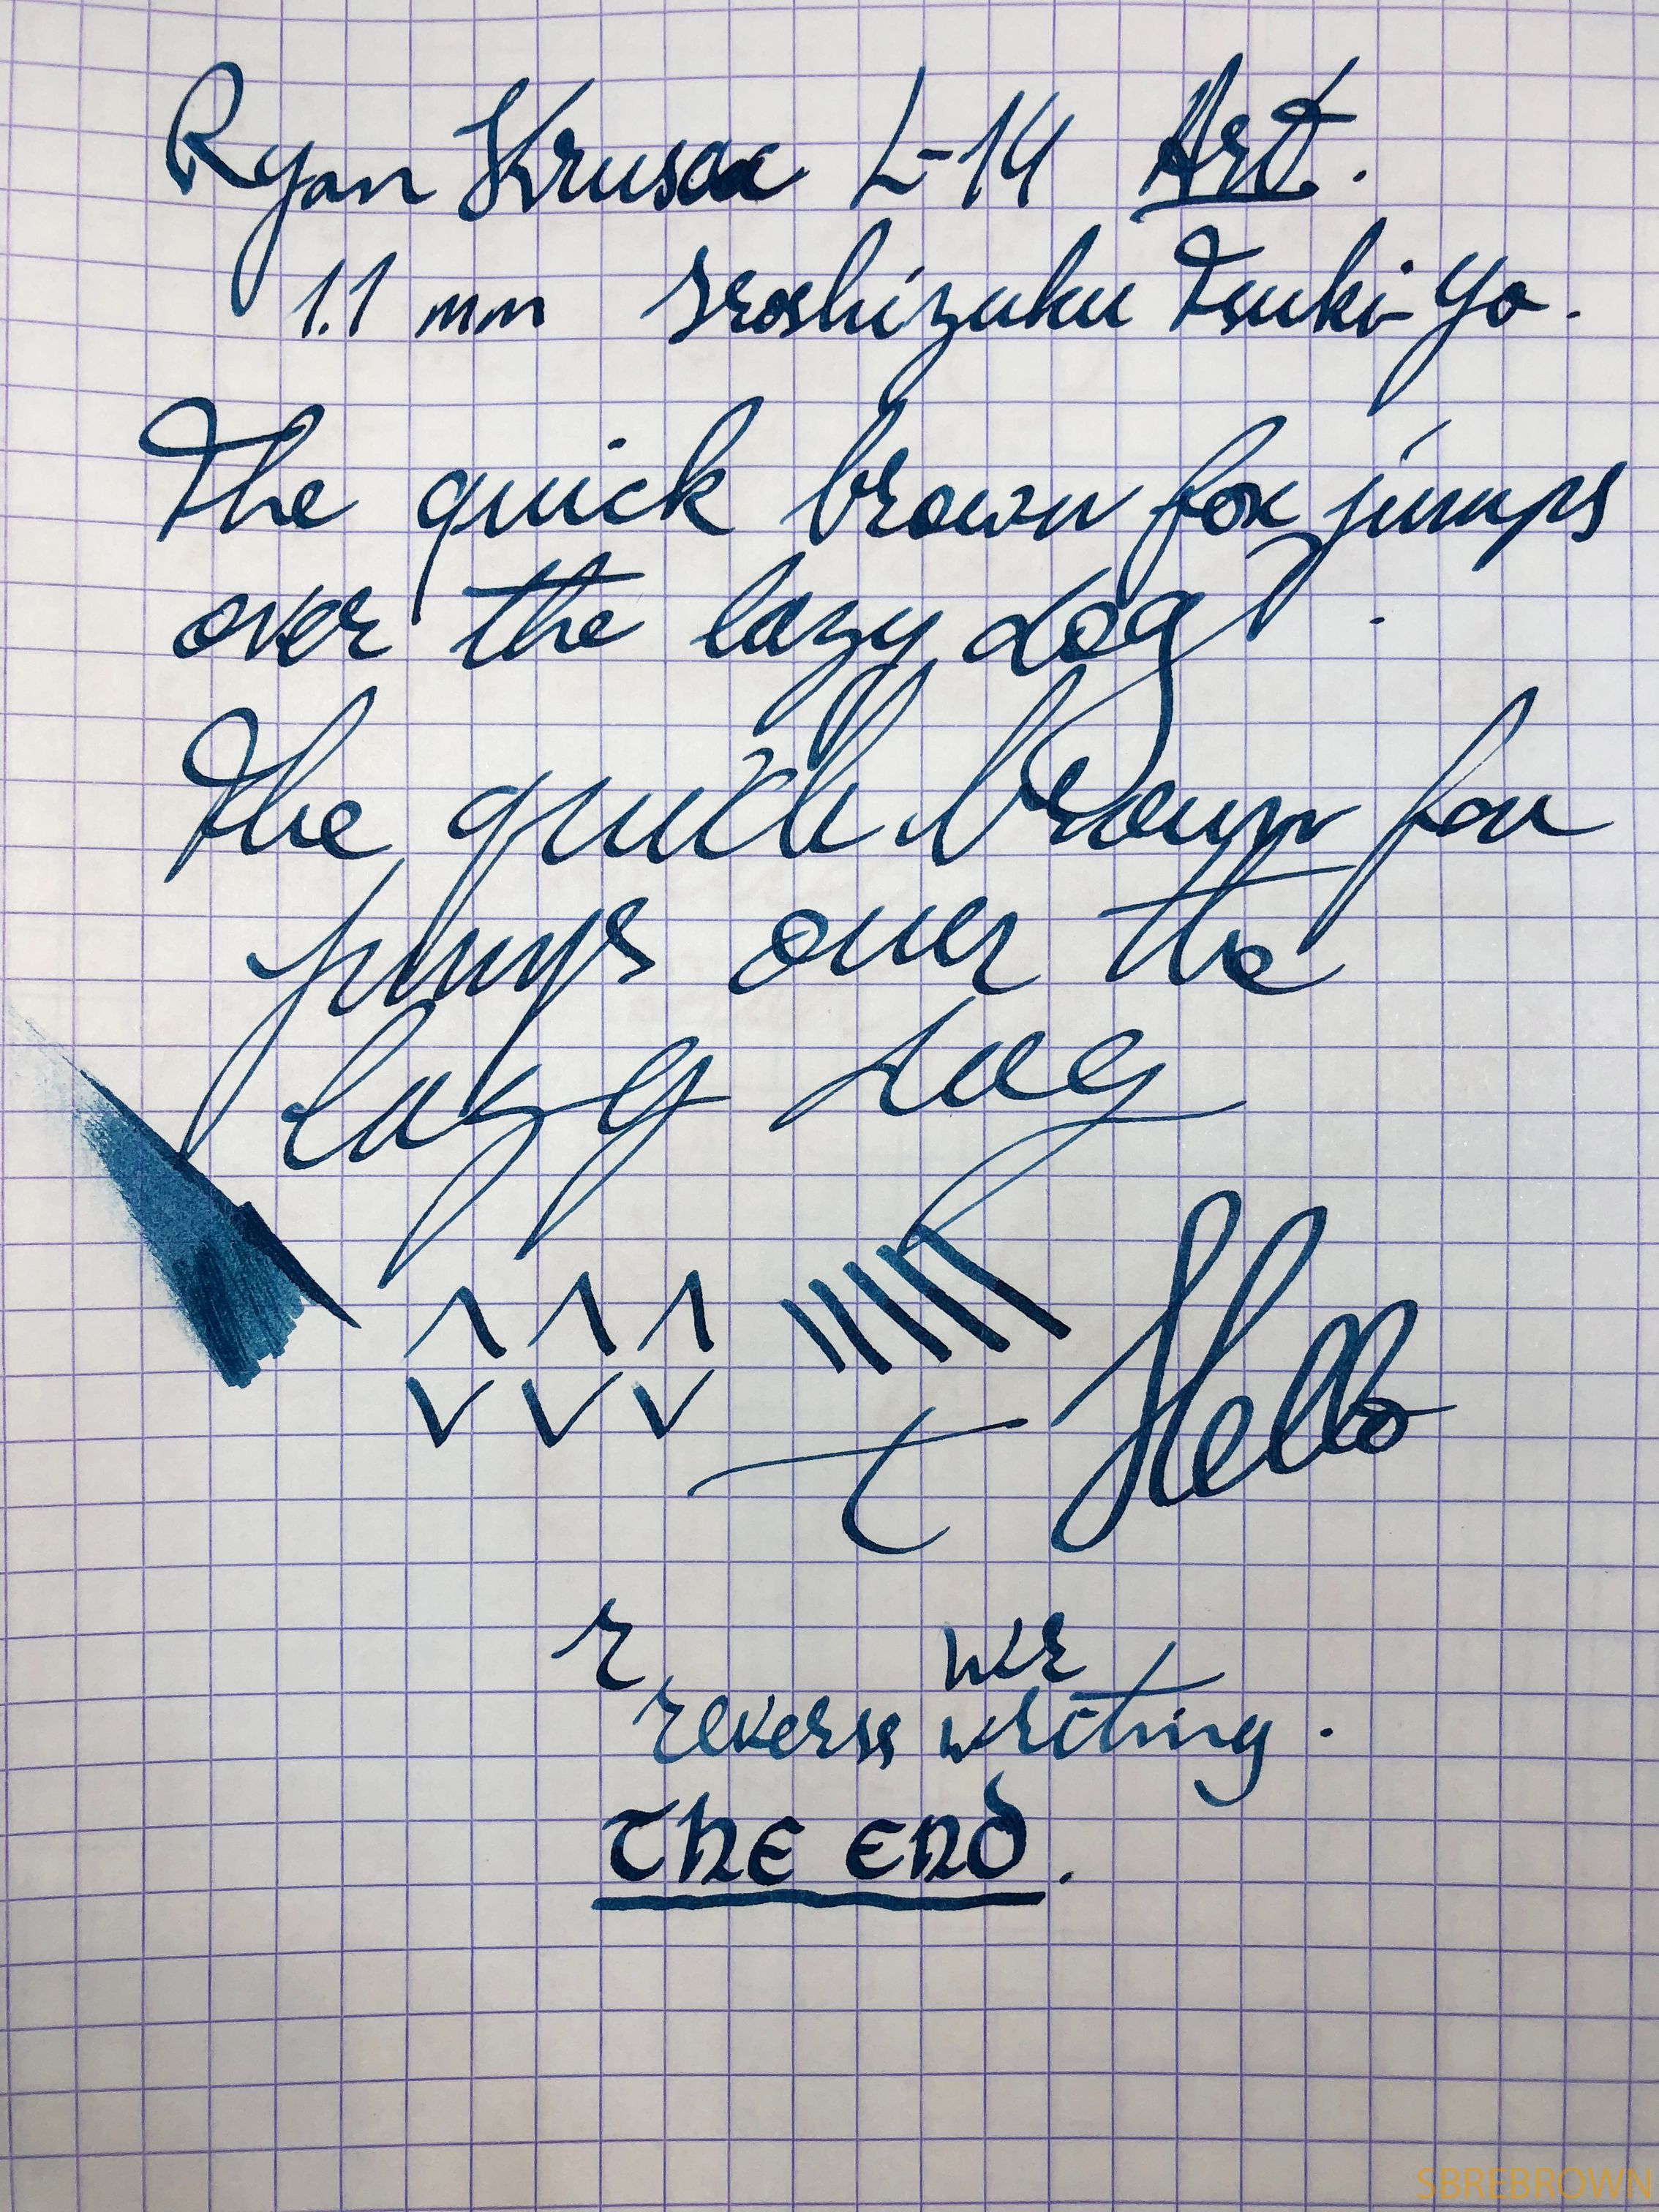 Ryan Krusac L-14 Art.
1.1 mm Iroshizuku Tsuki-Yo.
The quick brown fox jumps
over the lazy dog.
The quick brown fox
jumps over the
lazy dog
Hello
r we
reverse writing.
The End.
SBREBROWN